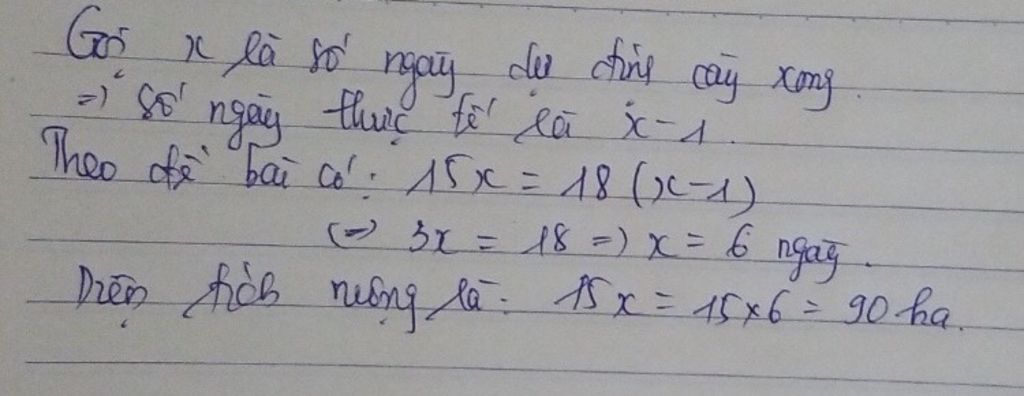 Gọi x là số ngày dự định cày xong.
=> số ngày thực tế là x-1.
Theo đề bài có: 15x = 18 (x-1)
(=> 3x = 18 => x = 6 ngày.
Diện tích ruộng là: 15x = 15x6 = 90 ha.